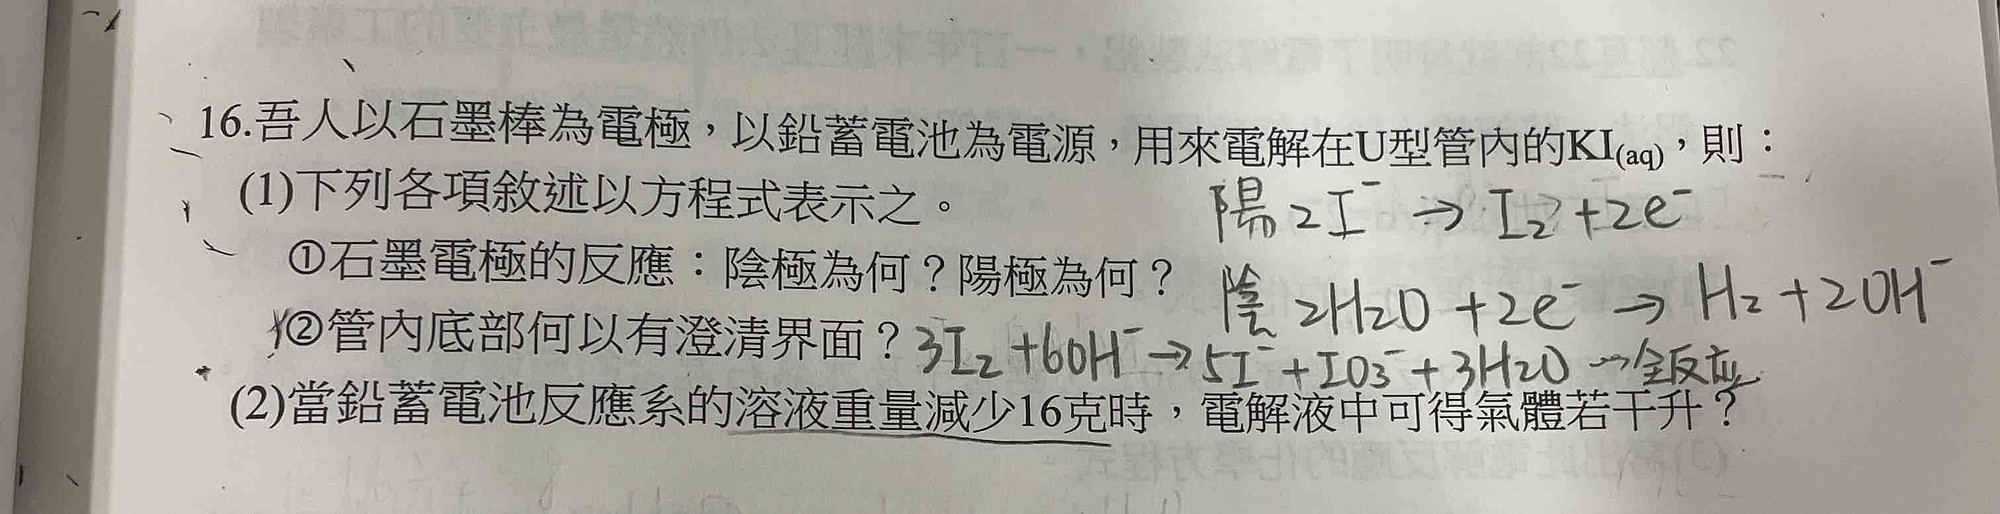 16.吾人以石墨棒為電極，以鉛蓄電池為電源，用來電解在U型管內的KI(aq)，則：
(1)下列各項敘述以方程式表示之。
陽 2I⁻ → I₂ + 2e⁻
①石墨電極的反應：陰極為何？陽極為何？
陰 2H₂O + 2e⁻ → H₂ + 2OH⁻
②管內底部何以有澄清界面？
3I₂ + 6OH⁻ → 5I⁻ + IO₃⁻ + 3H₂O → 全反應
(2)當鉛蓄電池反應系的溶液重量減少16克時，電解液中可得氣體若干升？